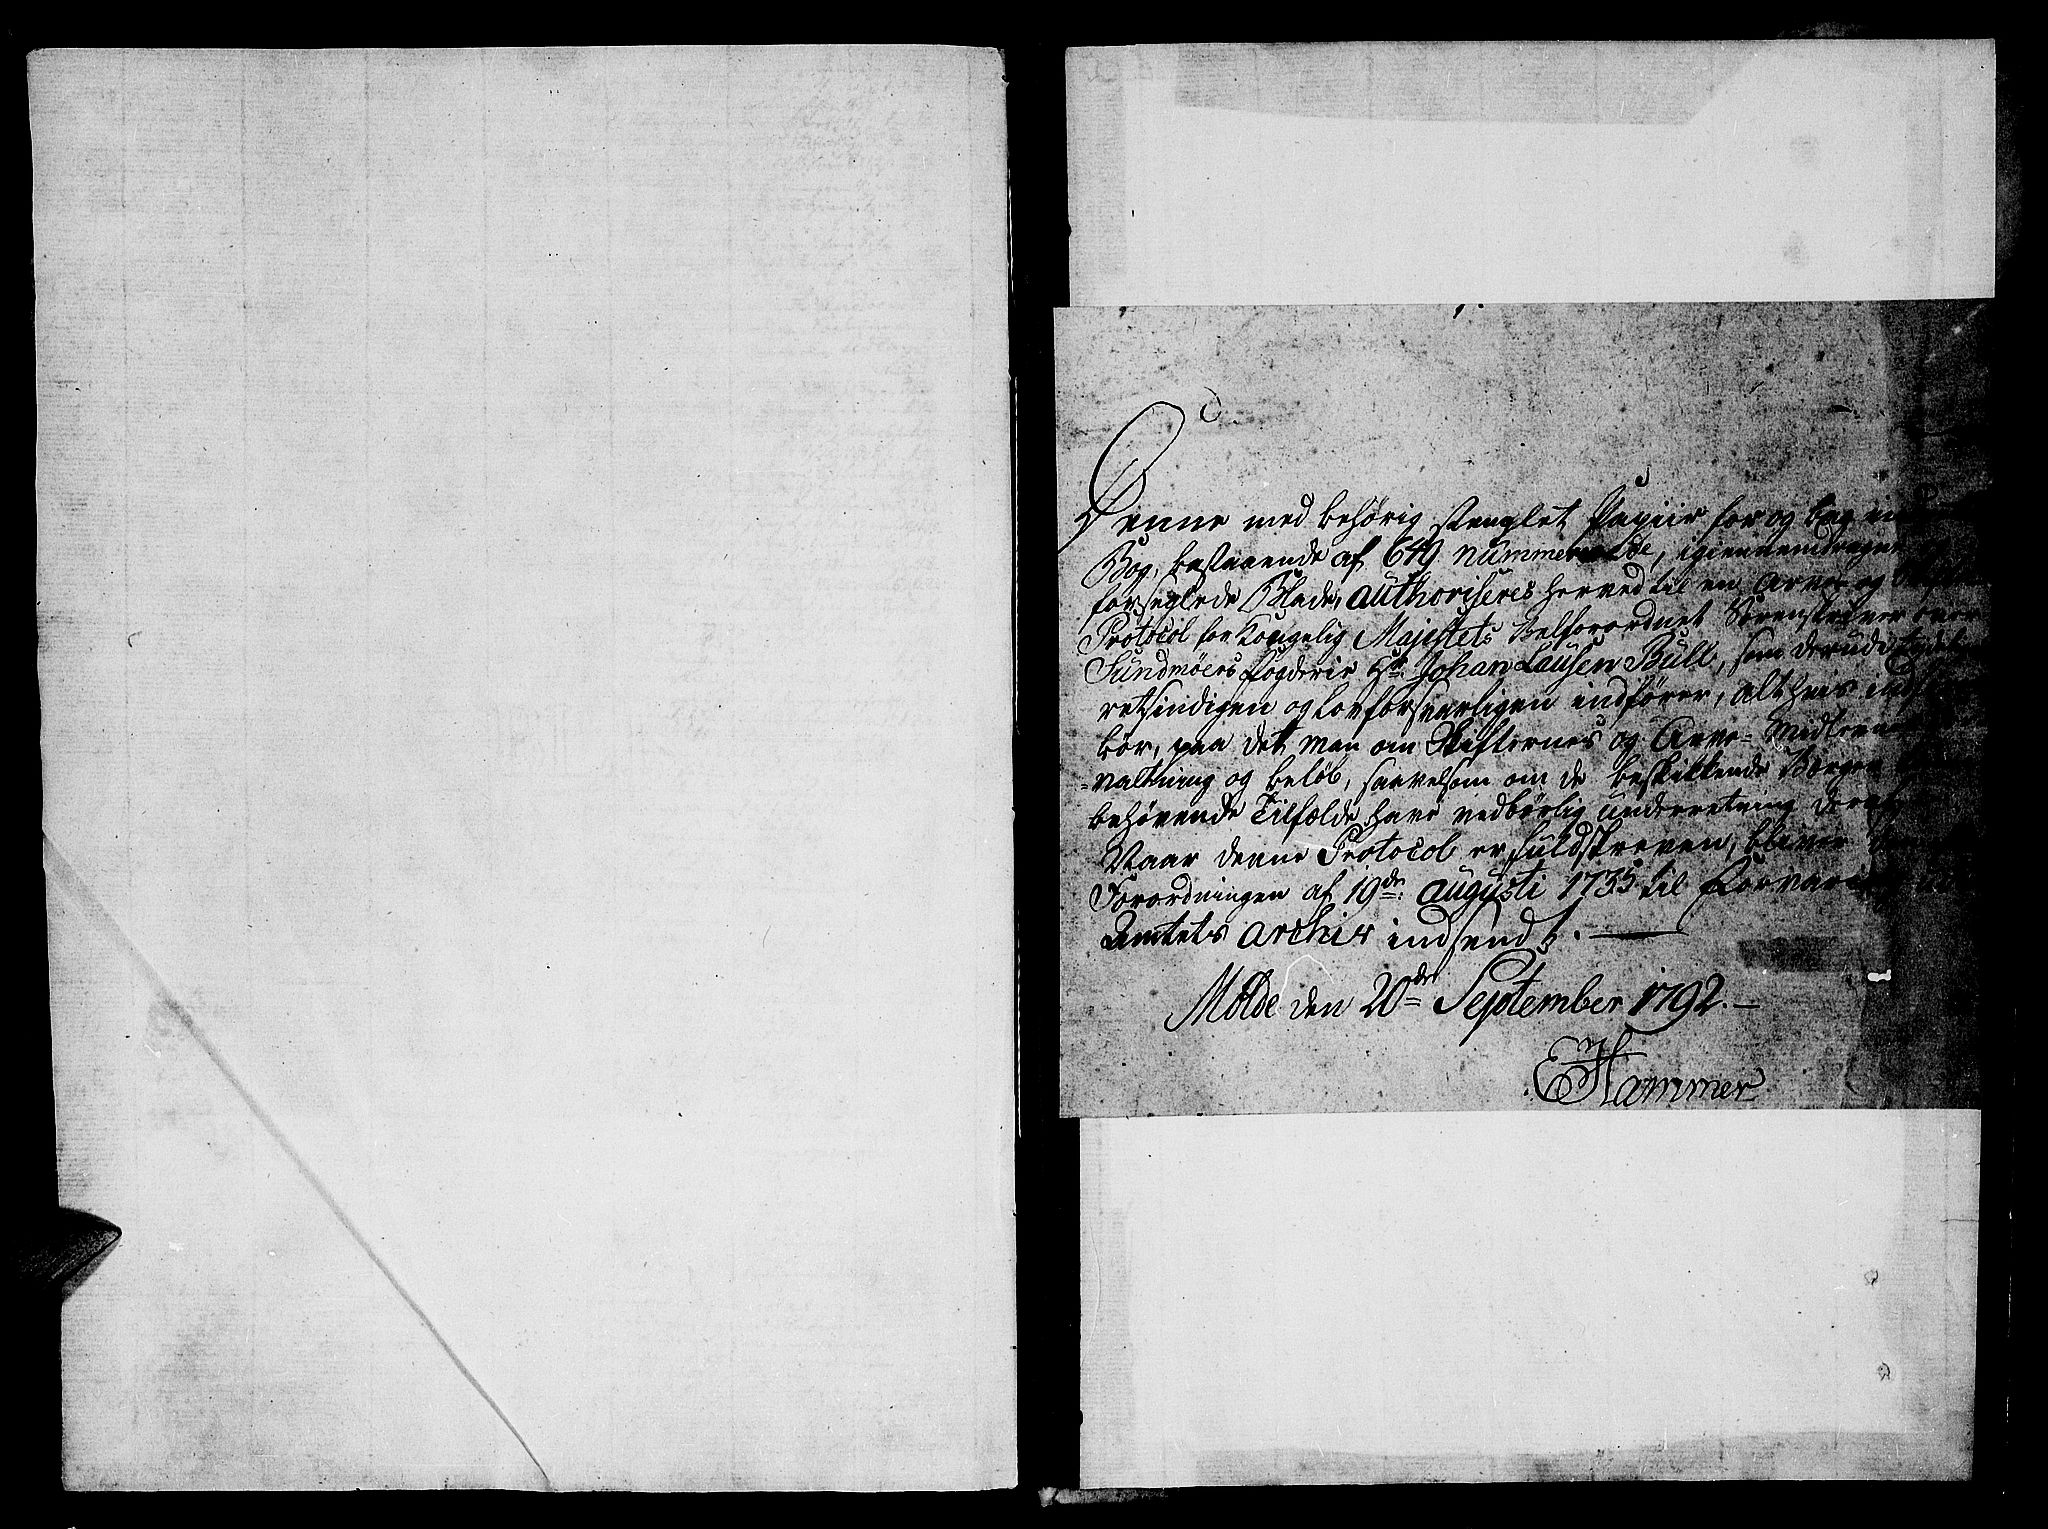 Denne med behörig Stemplet Papiir for og bag
Bog, bestaaende af 649 nummererede, igiennemdragne
forseglede Blade, authoriseres herved til en Arve og
Protocol for Kongelig Majestets Velforordnet Sorenskriver over
Sundmöers Fogderie Hr. Johan Lausen Bull, som derudi
retsindigen og lovforsvarligen indförer, alt hvis
bör, paa det man om Skifternes og Arve-Midlernes
=valtning og belöb, saavelsom om de beskikkende Börger
behövende Tilfælde have vedbörlig underretning
Naar denne Protocol er fuldskreven, bliver
Forordningen af 19de Augusti 1735 til Forvaring
Amtets Archiv indsendt.
Molde den 20de September 1792.
EHammer